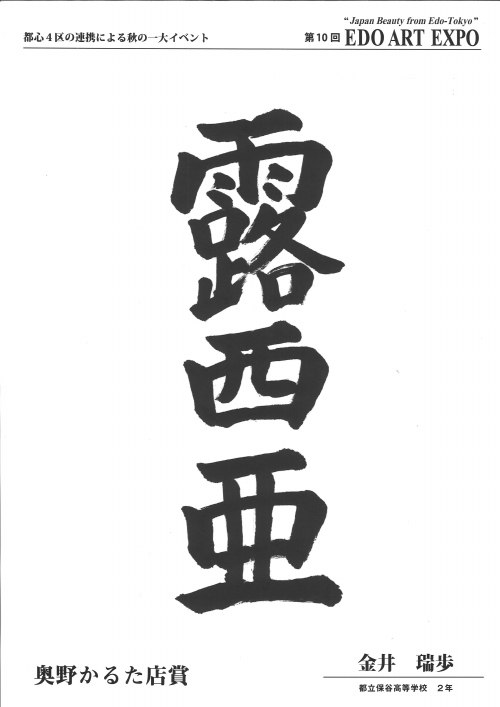 都心4区の連携による秋の一大イベント
"Japan Beauty from Edo-Tokyo"
第10回 EDO ART EXPO
露西亜
奥野かるた店賞
金井 瑞歩
都立保谷高等学校 2年